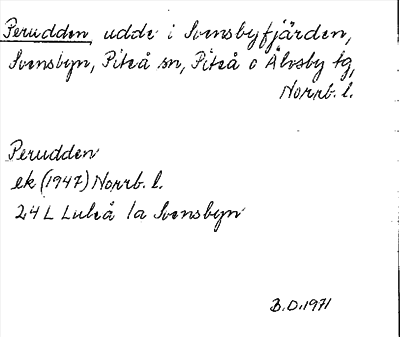 Perudden udde i Svensbyfjärden,
Svensbyn, Piteå sn, Piteå o Älvsby tg,
Norrb. l.
Perudden
ek (1947) Norrb. l.
24 L Luleå 1a Svensbyn
B.D. 1971